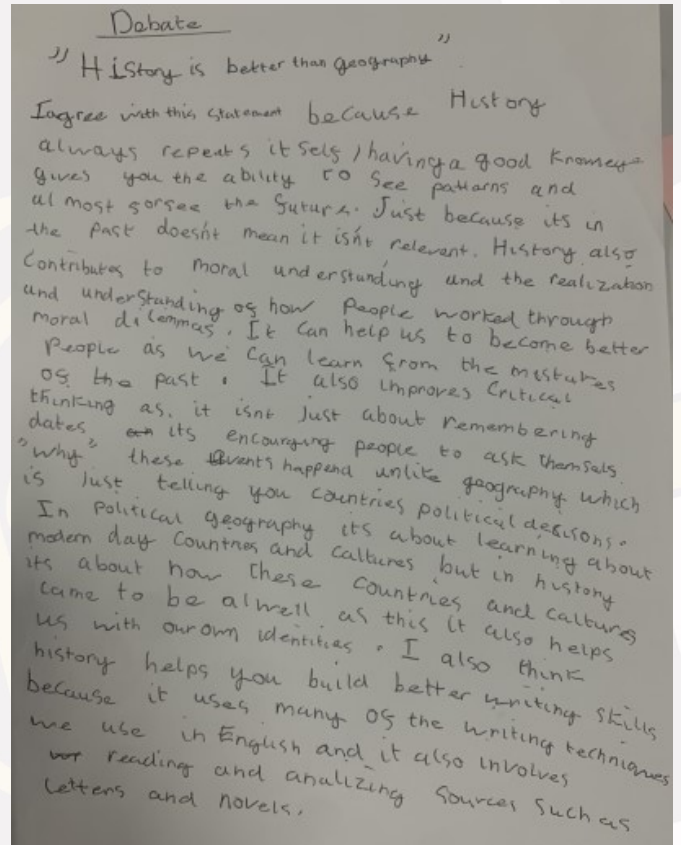 Debate
"History is better than geography".
I agree with this statement because History
always repeats it self, having a good
gives you the ability to see patterns and
almost forsee the future. Just because its in
the past doesn't mean it isn't relevant. History also
contributes to moral understanding and the realization
and understanding of how people worked through
moral dilemmas. It can help us to become better
people as we can learn from the mistakes
of the past. It also improves critical
thinking as, it isnt just about remembering
dates its encouraging people to ask themsels
"why" these events happend unlike geography which
is just telling you countries political desisons.
In political geography its about learning about
modern day countries and caltures but in history
its about how these countries and caltures
came to be alwell as this it also helps
us with our own identities. I also think
history helps you build better writing skills
because it uses many of the writing techniques
we use in English and it also involves
reading and analizing sources such as
letters and novels.